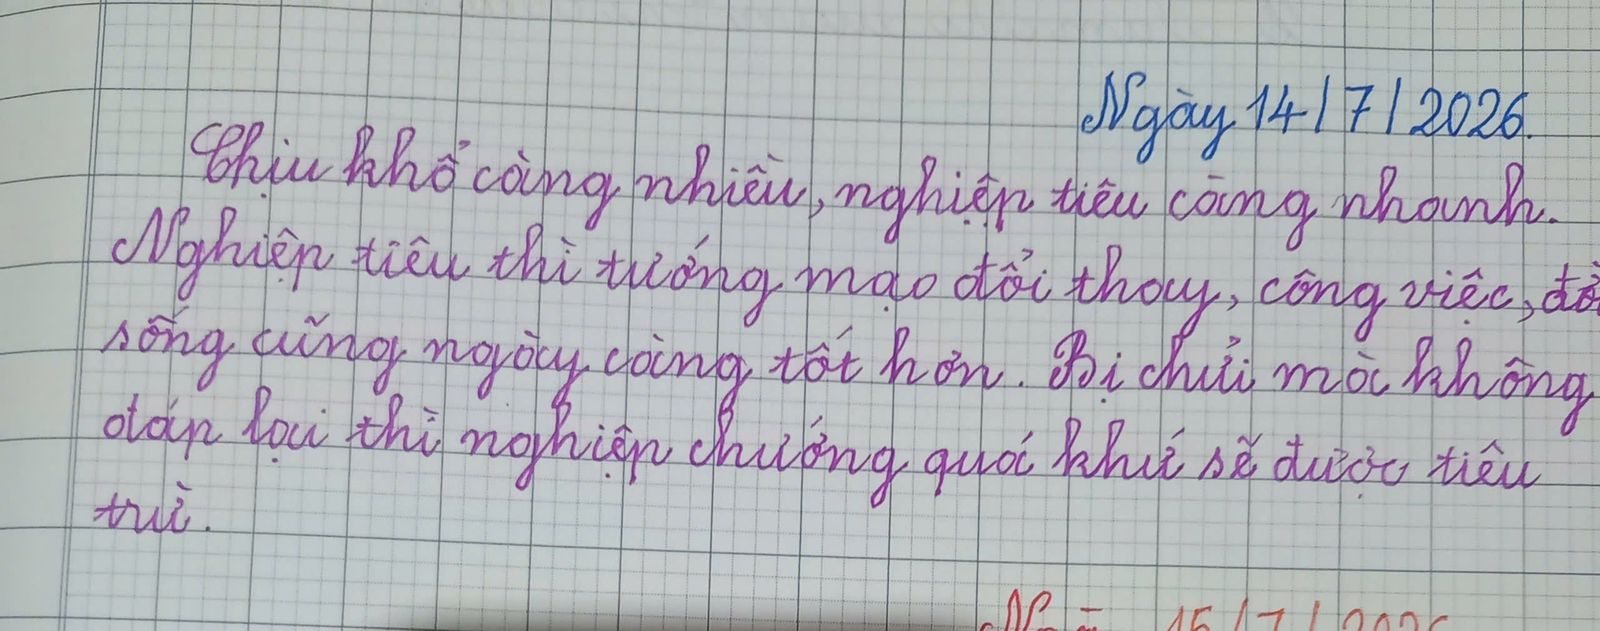 Ngày 14/7/2026.
Chịu khổ càng nhiều, nghiệp tiêu càng nhanh.
Nghiệp tiêu thì tướng mạo đổi thay, công việc,
sống cũng ngày càng tốt hơn. Bị chửi mà không
đáp lại thì nghiệp chướng quá khứ sẽ được tiêu
trừ.
15/7/2026